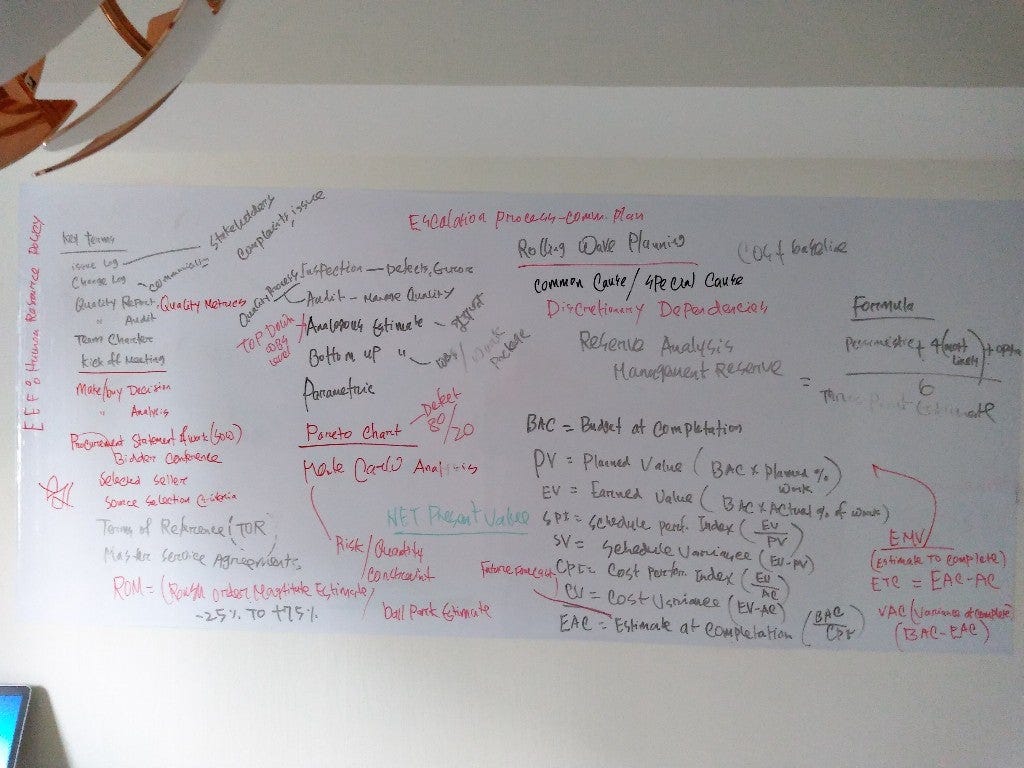 EEF: Human Resource Policy
Key Terms
issue Log
Stakeholders
Complaints, issue
Change Log
Quality Report, Quality Metrics
" Audit
Team Charter
Kick off Meeting
Make/buy Decision
" Analysis
Procurement Statement of work (SOW)
Bidder Conference
Selected seller
Source Selection Criteria
Terms of Reference (TOR)
Master Service Agreements
ROM = (Rough order Magtitute Estimate)
-25% TO +75%
Inspection — Defects, Errors
Audit - Manage Quality
TOP Down
WBS
level
Analogous Estimate
Bottom up "
WBS / Work
Package
Parametric
Pareto Chart
Defect
80/20
Monte Carlo Analysis
NET Present Value
Risk/Quantity
Constraint
Ball Park Estimate
Escalation process-comm. plan
Rolling Wave Planning
Cost baseline
Common Cause/Special Cause
Discretionary Dependencies
Reserve Analysis
Management Reserve
Formula
Pessimistic + 4(most
likely) +
=
6
Three Point Estimate
BAC = Budget at completation
PV = Planned Value (BAC x planned %
work)
EV = Earned Value (BAC x Actual % of work)
SPI = Schedule perf. Index (EV/PV)
SV = Schedule Variance (EV-PV)
Future Forecast
CPI = Cost perfor. Index (EV/AC)
CV = Cost Variance (EV-AC)
EAC = Estimate at completation (BAC/CPI)
EMV
(Estimate To Complete)
ETC = EAC-AC
VAC (Variance at complete)
(BAC-EAC)